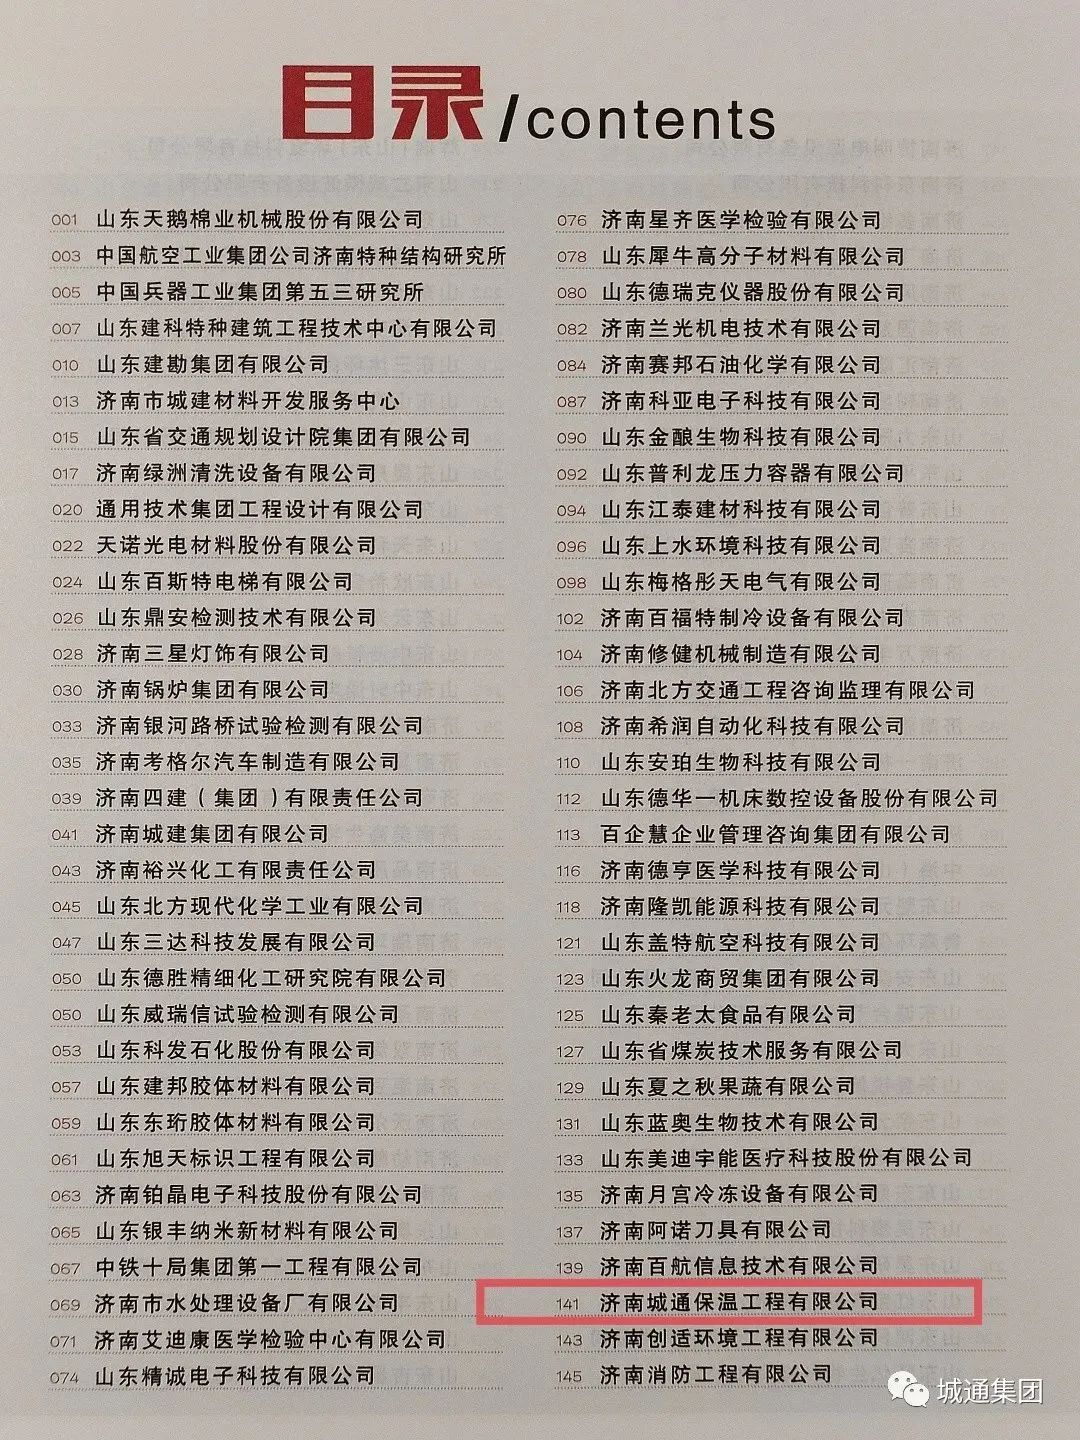 目录/contents
001 山东天鹅棉业机械股份有限公司
003 中国航空工业集团公司济南特种结构研究所
005 中国兵器工业集团第五三研究所
007 山东建科特种建筑工程技术中心有限公司
010 山东建勘集团有限公司
013 济南市城建材料开发服务中心
015 山东省交通规划设计院集团有限公司
017 济南绿洲清洗设备有限公司
020 通用技术集团工程设计有限公司
022 天诺光电材料股份有限公司
024 山东百斯特电梯有限公司
026 山东鼎安检测技术有限公司
028 济南三星灯饰有限公司
030 济南锅炉集团有限公司
033 济南银河路桥试验检测有限公司
035 济南考格尔汽车制造有限公司
039 济南四建（集团）有限责任公司
041 济南城建集团有限公司
043 济南裕兴化工有限责任公司
045 山东北方现代化学工业有限公司
047 山东三达科技发展有限公司
050 山东德胜精细化工研究院有限公司
050 山东威瑞信试验检测有限公司
053 山东科发石化股份有限公司
057 山东建邦胶体材料有限公司
059 山东东珩胶体材料有限公司
061 山东旭天标识工程有限公司
063 济南铂晶电子科技股份有限公司
065 山东银丰纳米新材料有限公司
067 中铁十局集团第一工程有限公司
069 济南市水处理设备厂有限公司
071 济南艾迪康医学检验中心有限公司
074 山东精诚电子科技有限公司
076 济南星齐医学检验有限公司
078 山东犀牛高分子材料有限公司
080 山东德瑞克仪器股份有限公司
082 济南兰光机电技术有限公司
084 济南赛邦石油化学有限公司
087 济南科亚电子科技有限公司
090 山东金酿生物科技有限公司
092 山东普利龙压力容器有限公司
094 山东江泰建材科技有限公司
096 山东上水环境科技有限公司
098 山东梅格彤天电气有限公司
102 济南百福特制冷设备有限公司
104 济南修健机械制造有限公司
106 济南北方交通工程咨询监理有限公司
108 济南希润自动化科技有限公司
110 山东安珀生物科技有限公司
112 山东德华一机床数控设备股份有限公司
113 百企慧企业管理咨询集团有限公司
116 济南德亨医学科技有限公司
118 济南隆凯能源科技有限公司
121 山东盖特航空科技有限公司
123 山东火龙商贸集团有限公司
125 山东秦老太食品有限公司
127 山东省煤炭技术服务有限公司
129 山东夏之秋果蔬有限公司
131 山东蓝奥生物技术有限公司
133 山东美迪宇能医疗科技股份有限公司
135 济南月宫冷冻设备有限公司
137 济南阿诺刀具有限公司
139 济南百航信息技术有限公司
141 济南城通保温工程有限公司
143 济南创适环境工程有限公司
145 济南消防工程有限公司
城通集团